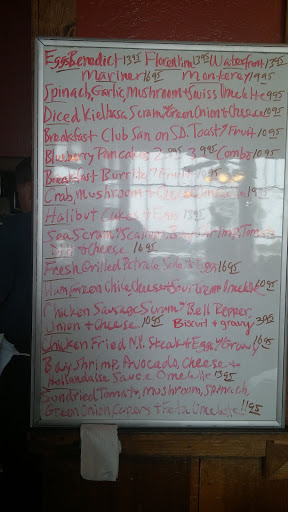 Eggs Benedict 13.95 Florentine 13.95 Waterfront 13.95
Mariner 16.95 Monterey 19.95
Spinach, Garlic, Mushroom + Swiss Omelette 9.95
Diced Kielbasa, Scram, Green Onion + Cheese 10.95
Breakfast Club San on S.D. Toast / Fruit 10.95
Blueberry Pancakes 2. 3.95 Combo 10.95
Breakfast Burrito / Fruit
Crab, Mushroom + Cheese
Halibut Cakes + Eggs
Sea Scram: Shrimp, Tomato
+ Cheese 16.95
Fresh Grilled Petrale Sole + Eggs 16.95
Ham, Green Chile, Cheese + Sour Cream Omelette 10.95
Chicken Sausage Scram: Bell Pepper,
Onion + Cheese 10.95 Biscuit + gravy 3.95
Chicken Fried N.Y. Steak + Eggs / Gravy 16.95
Bay Shrimp, Avocado, Cheese +
Hollandaise Sauce Omelette 13.95
Sundried Tomato, Mushroom, Spinach,
Green Onion, Capers + Feta Omelette!! 11.95